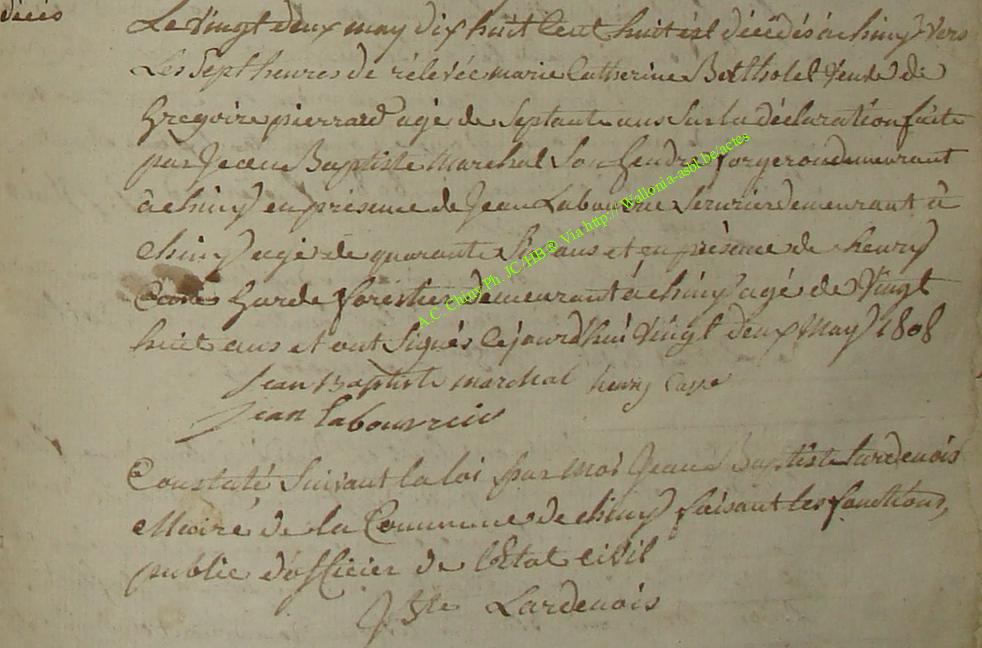 décés
Le vingt deux may dix huit cent huit est décédés à chiny vers
Les Sept heures de rélevée marie Catherine Botholet veuve de
Gregoire pierrard agé de Septante ans Sur la déclaration faite
par Jean Baptiste Marchal Son Gendre forgeron demeurant
à chiny en présence de Jean Labouverie Serurier demeurant à
Chiny agé de quarante ans et en présence de henry
Garde forestier demeurant à chiny agé de Vingt
huit ans et ont Signés cejourd'hui Vingt deux May 1808
jean Baptiste marchal henry Casse
jean Labouverie
Constaté Suivant la loi par Moi Jean Baptiste Lardenois
Maire de la Commune de chiny faisant les fonctions,
public d'officier de l'Etat civil
J Bte Lardenois
A.C. Chiny Ph. JC HB © Via http://Wallonia-asbl.be/actes